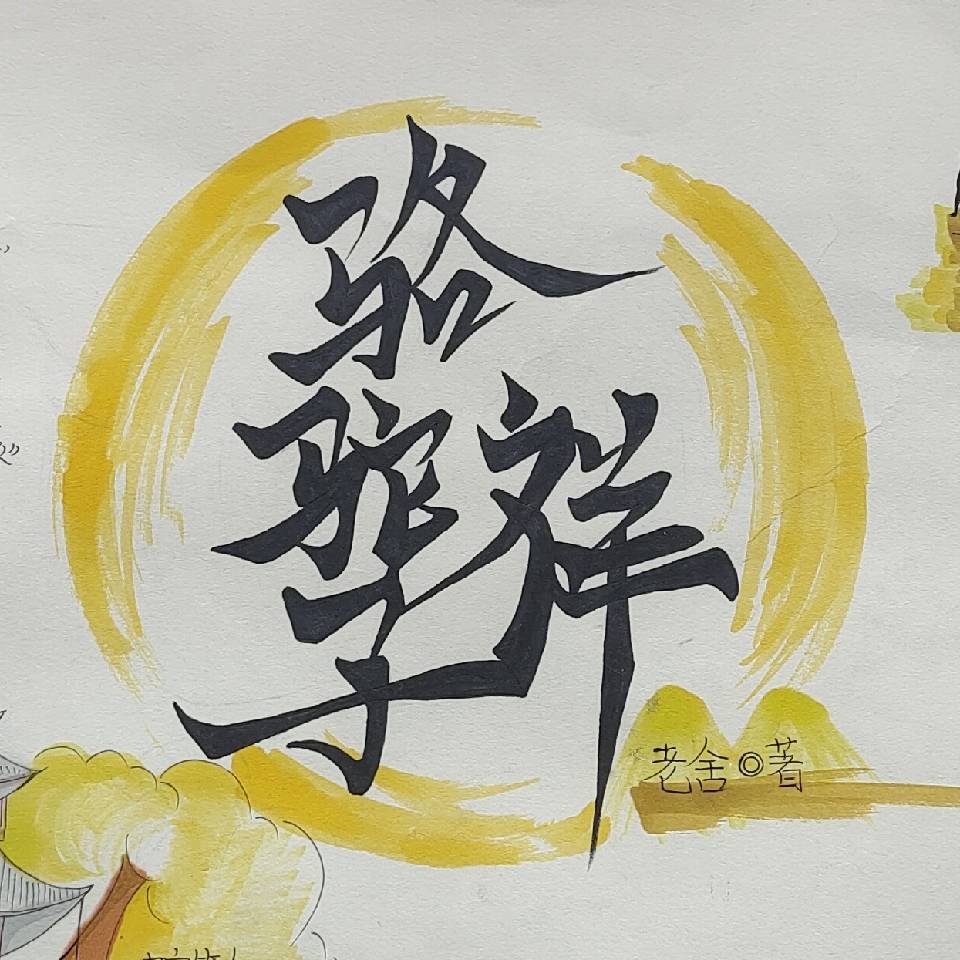 骆驼祥子
老舍◎著